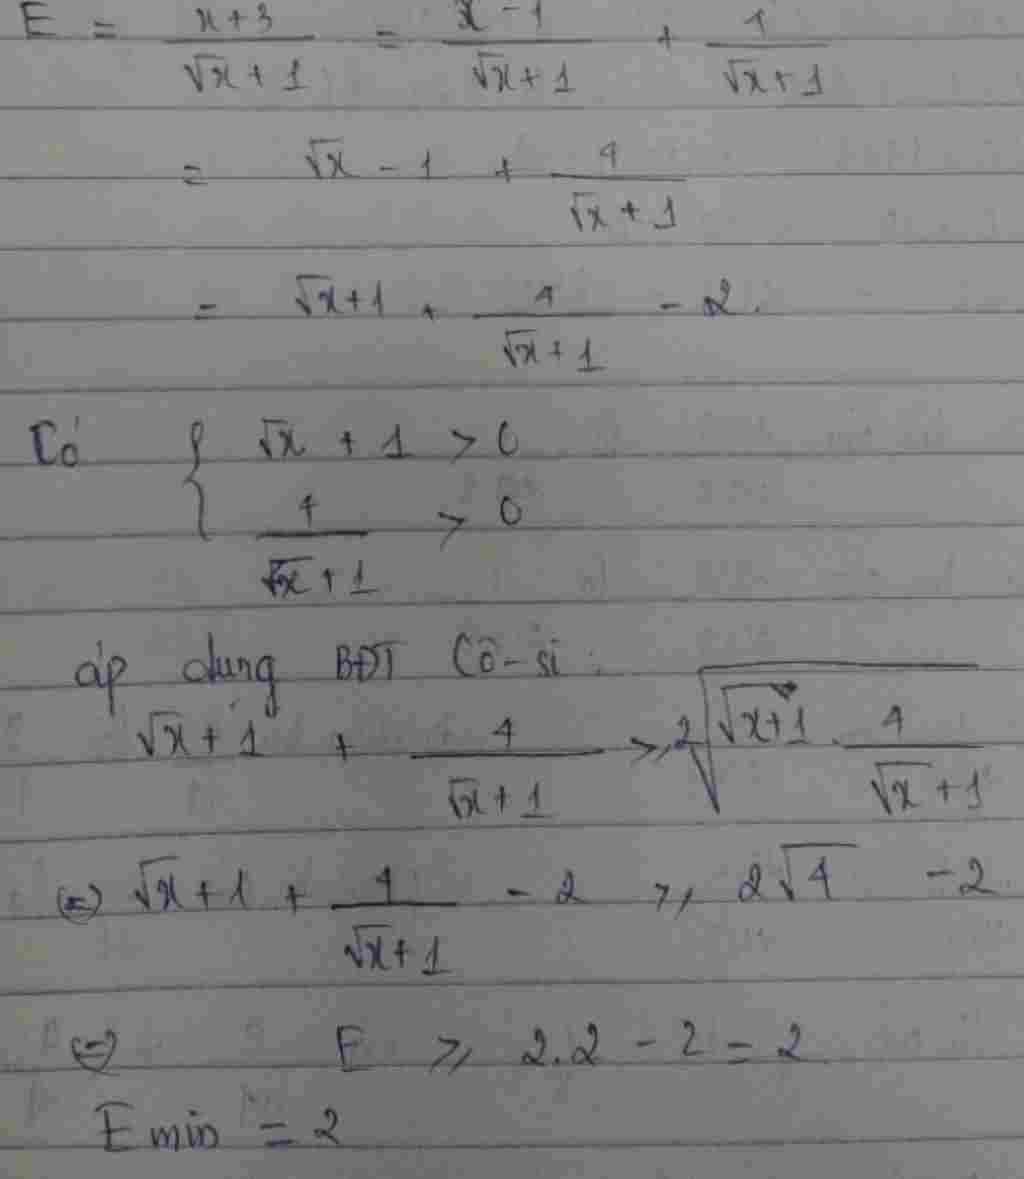 E = \frac{x+3}{\sqrt{x}+1} = \frac{x-1}{\sqrt{x}+1} + \frac{4}{\sqrt{x}+1}
= \sqrt{x} - 1 + \frac{4}{\sqrt{x}+1}
= \sqrt{x}+1 + \frac{4}{\sqrt{x}+1} - 2.
Có \begin{cases} \sqrt{x} + 1 > 0 \\ \frac{4}{\sqrt{x}+1} > 0 \end{cases}
áp dụng BĐT Cô-si :
\sqrt{x}+1 + \frac{4}{\sqrt{x}+1} \geq 2\sqrt{\sqrt{x}+1 \cdot \frac{4}{\sqrt{x}+1}}
(=) \sqrt{x}+1 + \frac{4}{\sqrt{x}+1} - 2 \geq 2\sqrt{4} - 2
(=) E \geq 2.2 - 2 = 2
E min = 2